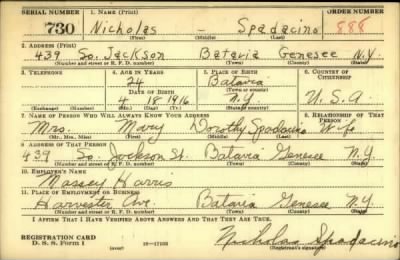 SERIAL NUMBER 1. NAME (Print) ORDER NUMBER
730 Nicholas - Spadacino 888
(First) (Middle) (Last)
2. ADDRESS (Print)
439 So. Jackson Batavia Genesee N.Y.
(Number and street or R. F. D. number) (Town) (County) (State)
3. TELEPHONE 4. AGE IN YEARS 5. PLACE OF BIRTH 6. COUNTRY OF CITIZENSHIP
24 Batavia
DATE OF BIRTH (Town or county)
4 18 1916 N.Y. U.S.A
(Exchange) (Number) (Mo.) (Day) (Yr.) (State or country)
7. NAME OF PERSON WHO WILL ALWAYS KNOW YOUR ADDRESS 8. RELATIONSHIP OF THAT PERSON
Mrs. Mary Dorothy Spadacino Wife
(Mr., Mrs., Miss) (First) (Middle) (Last)
9. ADDRESS OF THAT PERSON
439 So. Jackson St. Batavia Genesee N.Y.
(Number and street or R. F. D. number) (Town) (County) (State)
10. EMPLOYER'S NAME
Massey Harris
11. PLACE OF EMPLOYMENT OR BUSINESS
Harvester Ave. Batavia Genesee N.Y.
(Number and street or R. F. D. number) (Town) (County) (State)
I AFFIRM THAT I HAVE VERIFIED ABOVE ANSWERS AND THAT THEY ARE TRUE.
REGISTRATION CARD
D. S. S. Form 1 (over) 16—17105 Nicholas Spadacino
(Registrant's signature)